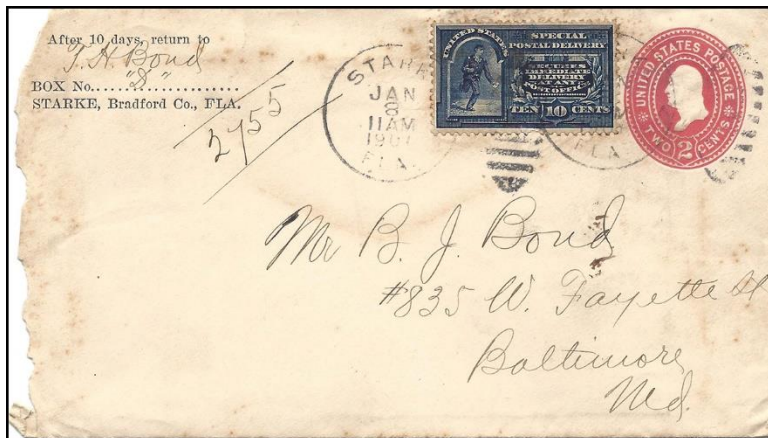 After 10 days, return to
T. H. Bond
BOX No....."D"....................
STARKE, Bradford Co., FLA.
2755
STARK
JAN
8
11AM
1901
FLA.
UNITED STATES
SPECIAL
POSTAL DELIVERY
SECURES
IMMEDIATE
DELIVERY
AT ANY
POST OFFICE
TEN 10 CENTS
FLA
UNITED STATES POSTAGE
TWO 2 CENTS
Mr B. J. Bond
#835 W. Fayette St
Baltimore
Md.